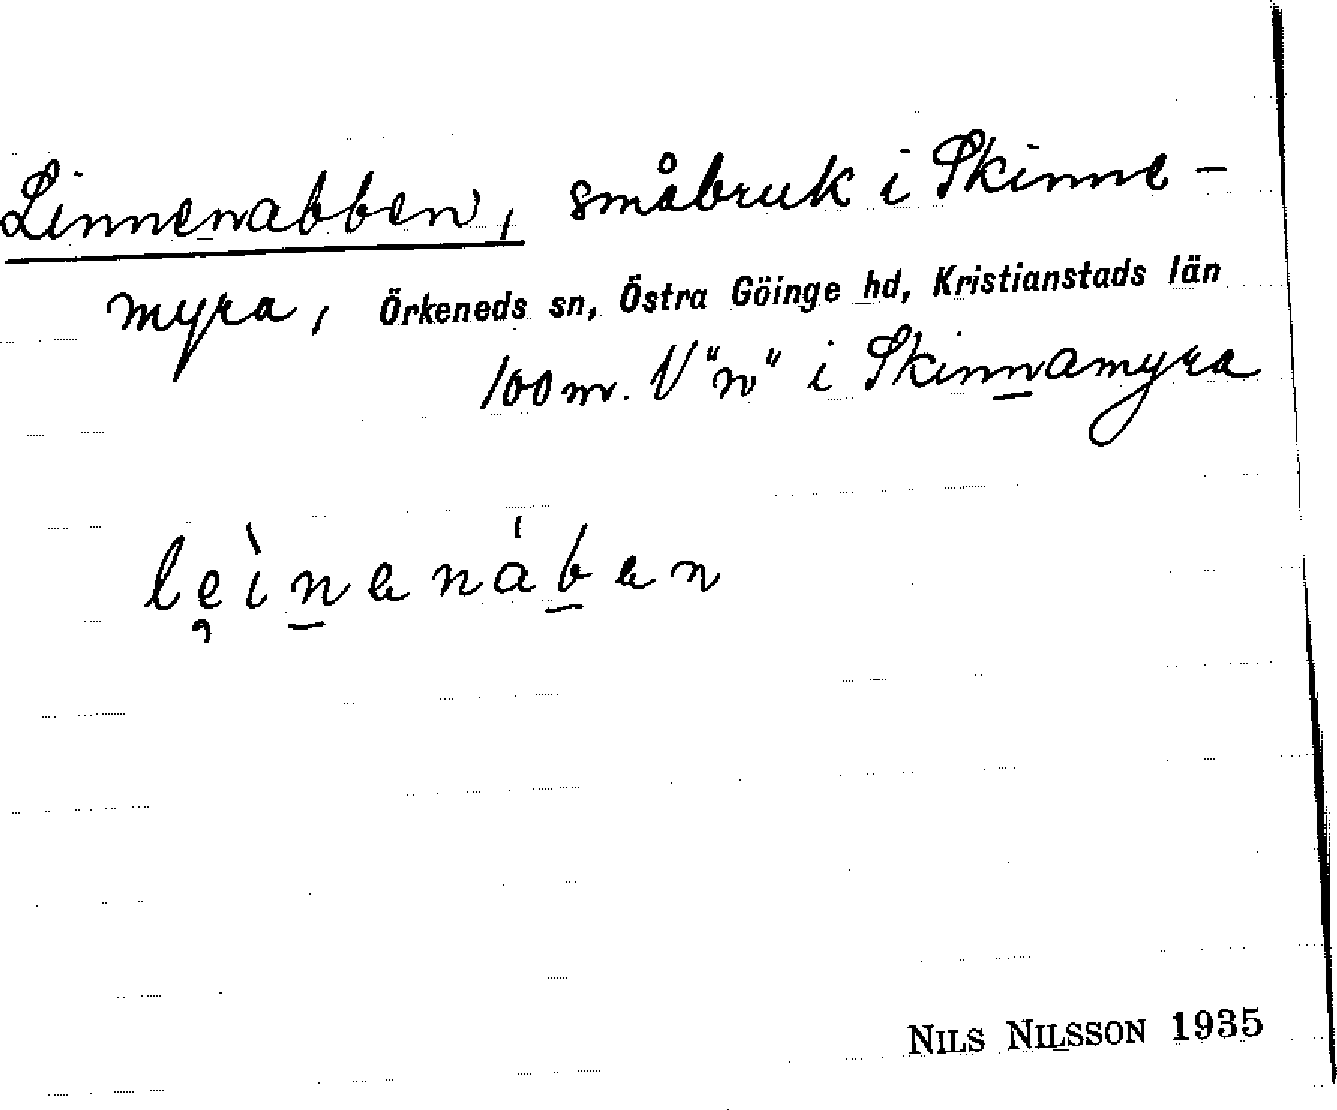 Linnenabben, småbruk i Skinne-
myra, Örkeneds sn, Östra Göinge hd, Kristianstads län
100 m. V "n" i Skinnamyra
lęìnenáben
NILS NILSSON 1935